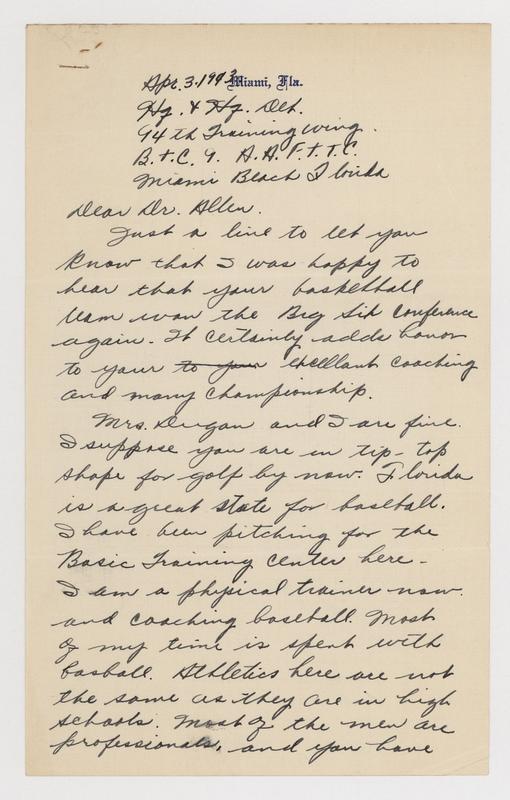 Apr. 3. 1943 Miami, Fla.
Hq. & Hq. Det.
94th Training Wing.
B.T.C. 9. A.A.F.T.T.C.
Miami Beach Florida
Dear Dr. Allen.
Just a line to let you
know that I was happy to
hear that your basketball
team won the Big Six Conference
again. It certainly adds honor
to your to your excellant coaching
and many championship.
Mrs. Dugan and I are fine.
I suppose you are in tip-top
shape for golf by now. Florida
is a great state for baseball.
I have been pitching for the
Basic Training Center here.
I am a physical trainer now.
and coaching baseball. Most
of my time is spent with
basball. Athletics here are not
the same as they are in high
schools. Most of the men are
professionals, and you have